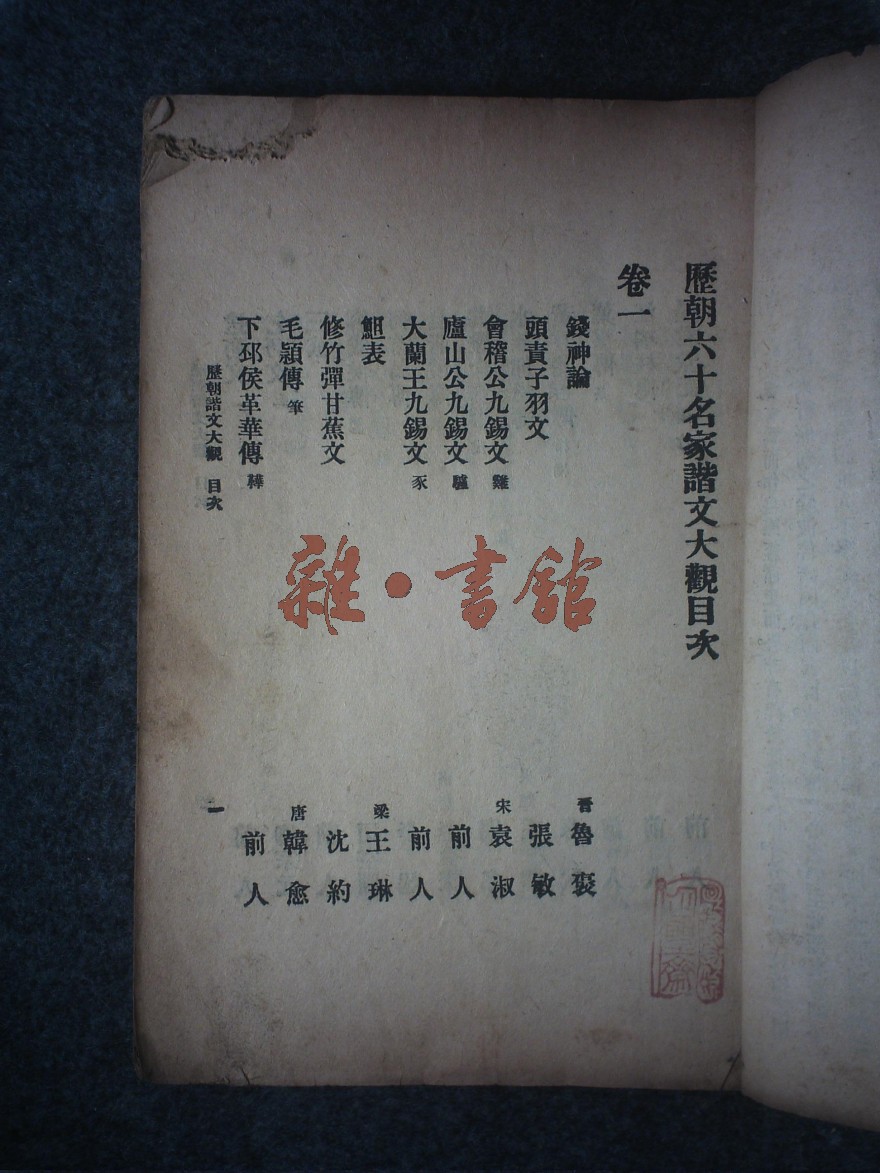 歷朝六十名家諧文大觀目次
卷一
錢神論 晉 魯褒
頭責子羽文 張敏
會稽公九錫文 雞 宋 袁淑
廬山公九錫文 驢 前人
大蘭王九錫文 豕 前人
䱇表 梁 王琳
修竹彈甘蕉文 沈約
毛穎傳 筆 唐 韓愈
下邳侯革華傳 鞾 前人
歷朝諧文大觀 目次 一
雜·書館